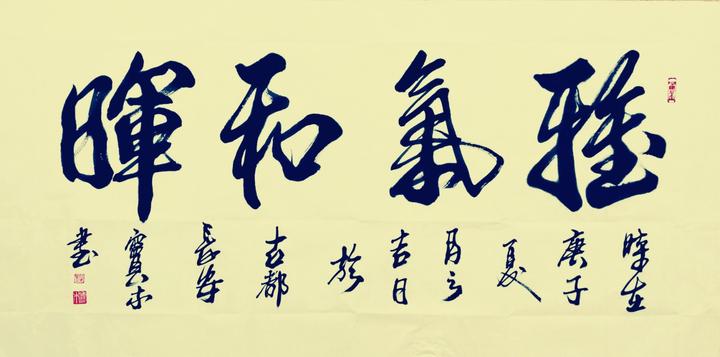 雅氣和暉
時在
庚子
夏
月之
吉日
於
古都
長安
寶
書